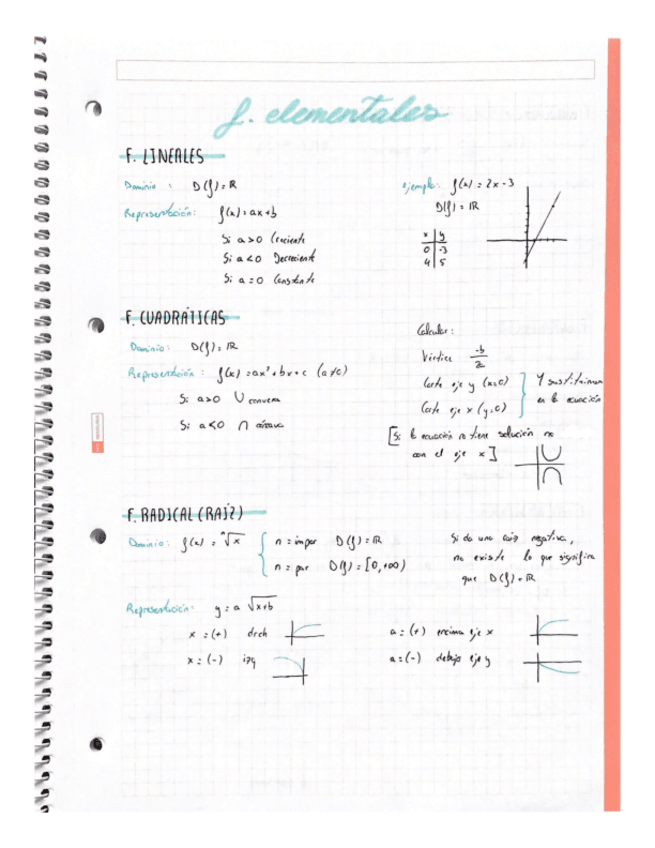 f. elementales
F. LINEALES
Dominio : D(f) = R
Representación: f(x) = ax+b
Si a>0 Creciente
Si a<0 Decreciente
Si a=0 Constante
ejemplo: f(x) = 2x-3
D(f) = IR
x y
0 -3
4 5
F. CUADRÁTICAS
Dominio: D(f) = IR
Representación: f(x) = ax²+bx+c (a≠0)
Si a>0 U convexa
Si a<0 ∩ cóncava
Calcular:
Vértice -b
Corte eje y (x=0)
Corte eje x (y=0)
Y sustituimos
en la ecuación
[Si la ecuación no tiene solución no
con el eje x]
F. RADICAL (RAÍZ)
Dominio: f(x) = ⁿ√x
n = impar D(f) = IR
n = par D(f) = [0,+∞)
Si da una raíz negativa,
no existe lo que significa
que D(f) = IR
Representación: y = a √x+b
x = (+) drch
x = (-) izq
a = (+) encima eje x
a = (-) debajo eje y